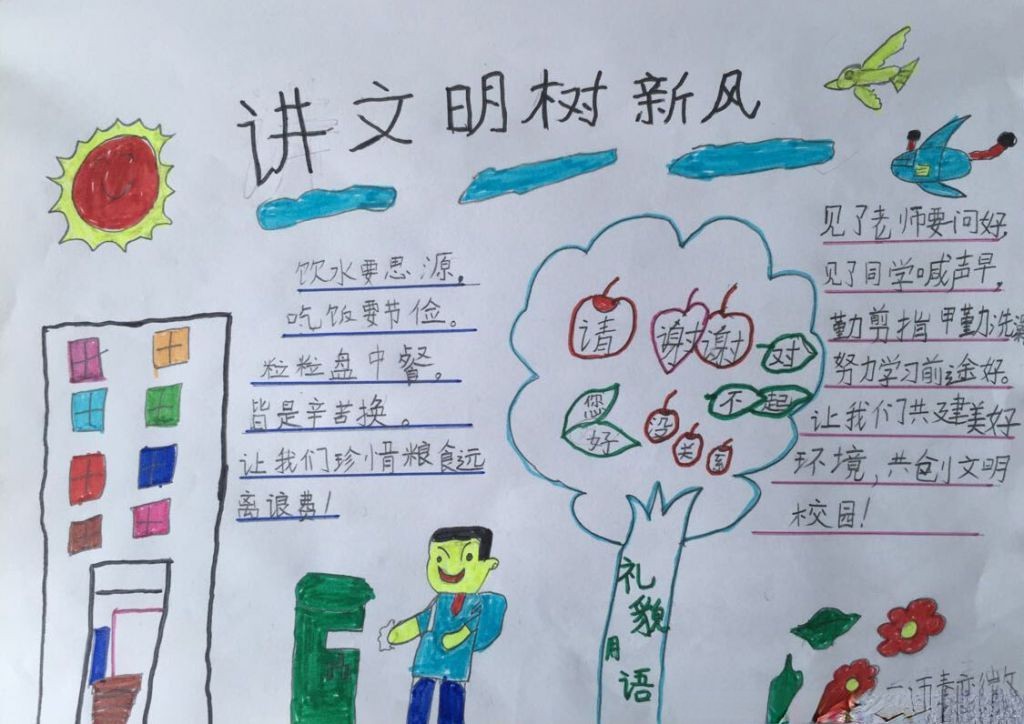 讲文明树新风
饮水要思源。
吃饭要节俭。
粒粒盘中餐。
皆是辛苦换。
让我们珍惜粮食远
离浪费！
请
谢谢
谢谢
对
不起
您
好
没
关
系
礼
貌
月
语
见了老师要问好，
见了同学喊声早，
勤剪指甲勤洗澡
努力学习前途金好。
让我们共建美好
环境，共创文明
校园！